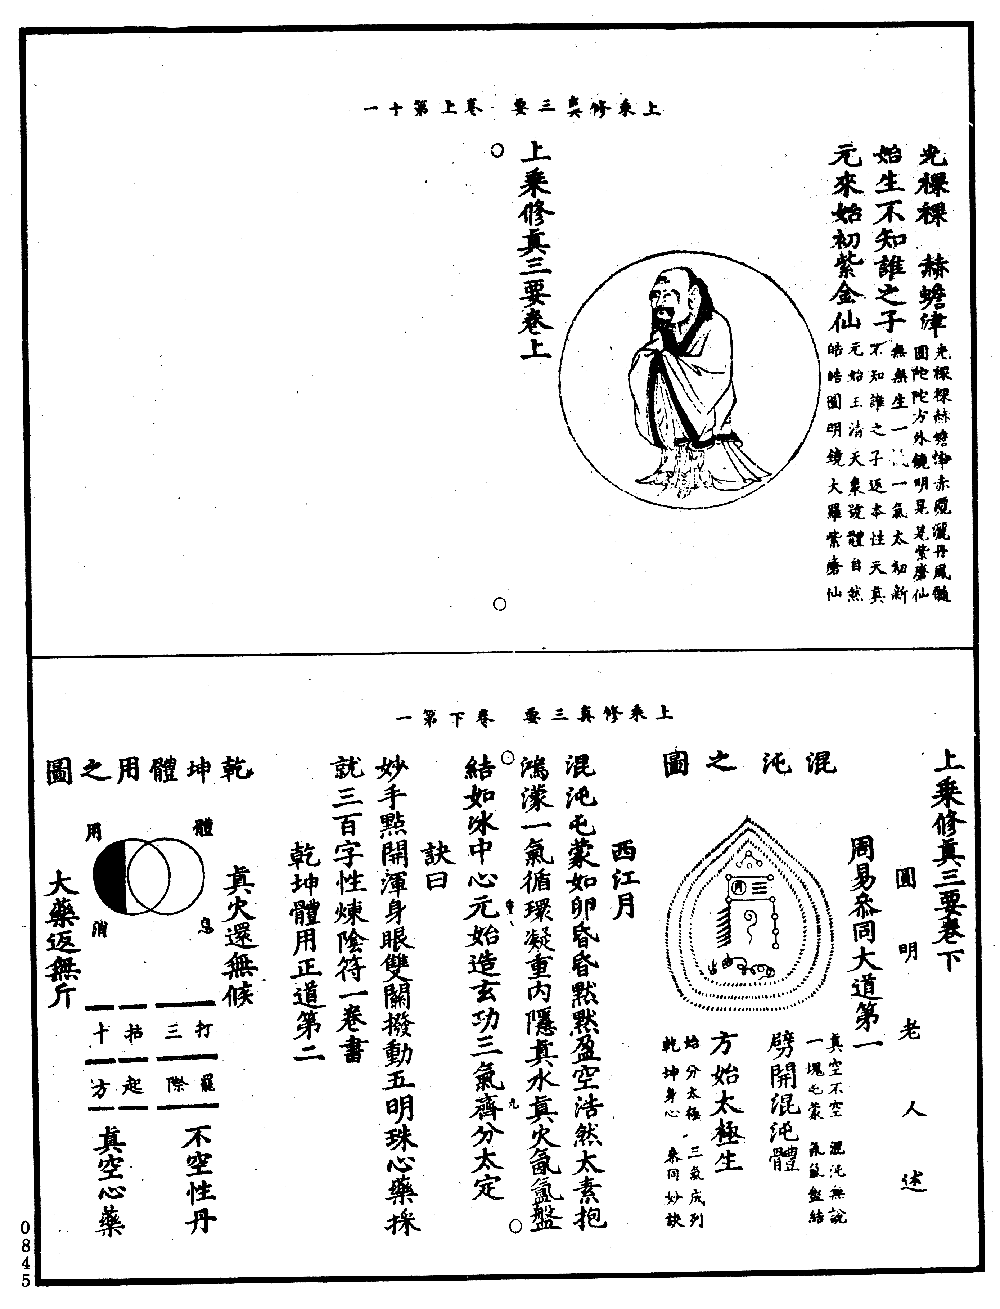 上乘修真三要　卷上第十一
光稞稞　赫蟾津
光稞稞赫蟾津赤鳳灑丹鳳髓
圓陀陀方外鏡明晃晃紫磨仙
始生不知誰之子
無無生一一氣太初新
不知誰之子返本性天真
元來始初紫金仙
元始玉清天象設體自然
皓皓圓明鏡大羅紫磨仙
上乘修真三要卷上
上乘修真三要　卷下第一
上乘修真三要卷下
圓明老人述
周易叅同大道第一
混沌之圖
真空不空　混沌無說
一塊屯蒙　氤氳盤結
劈開混沌體
方始太極生
始分太極　三氣成列
乾坤身心　叅同妙訣
西江月
混沌屯蒙如卵昏昏默默盈空浩然太素抱
鴻濛一氣循環凝重內隱真水真火氤氳盤
結如冰中心元始造玄功三氣齊分太定
訣曰
妙手點開渾身眼雙關撥動五明珠心藥採
就三百字性煉陰符一卷書
乾坤體用正道第二
乾坤體用之圖
體
用
息
消
真火還無候
大藥返無斤
打三拈十
羅際起方
不空性丹
真空心藥
0845